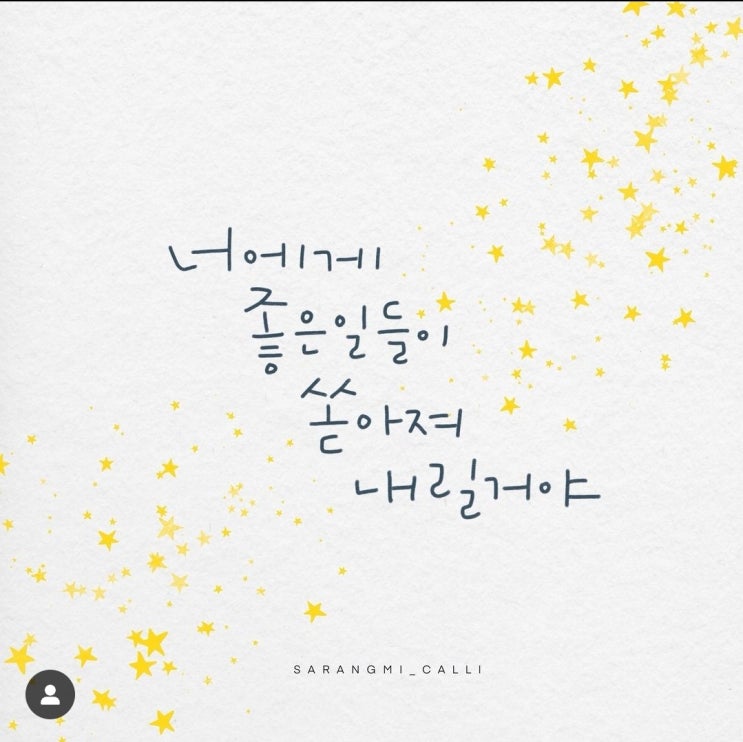 너에게
좋은일들이
쏟아져
내릴거야
SARANGMI_CALLI